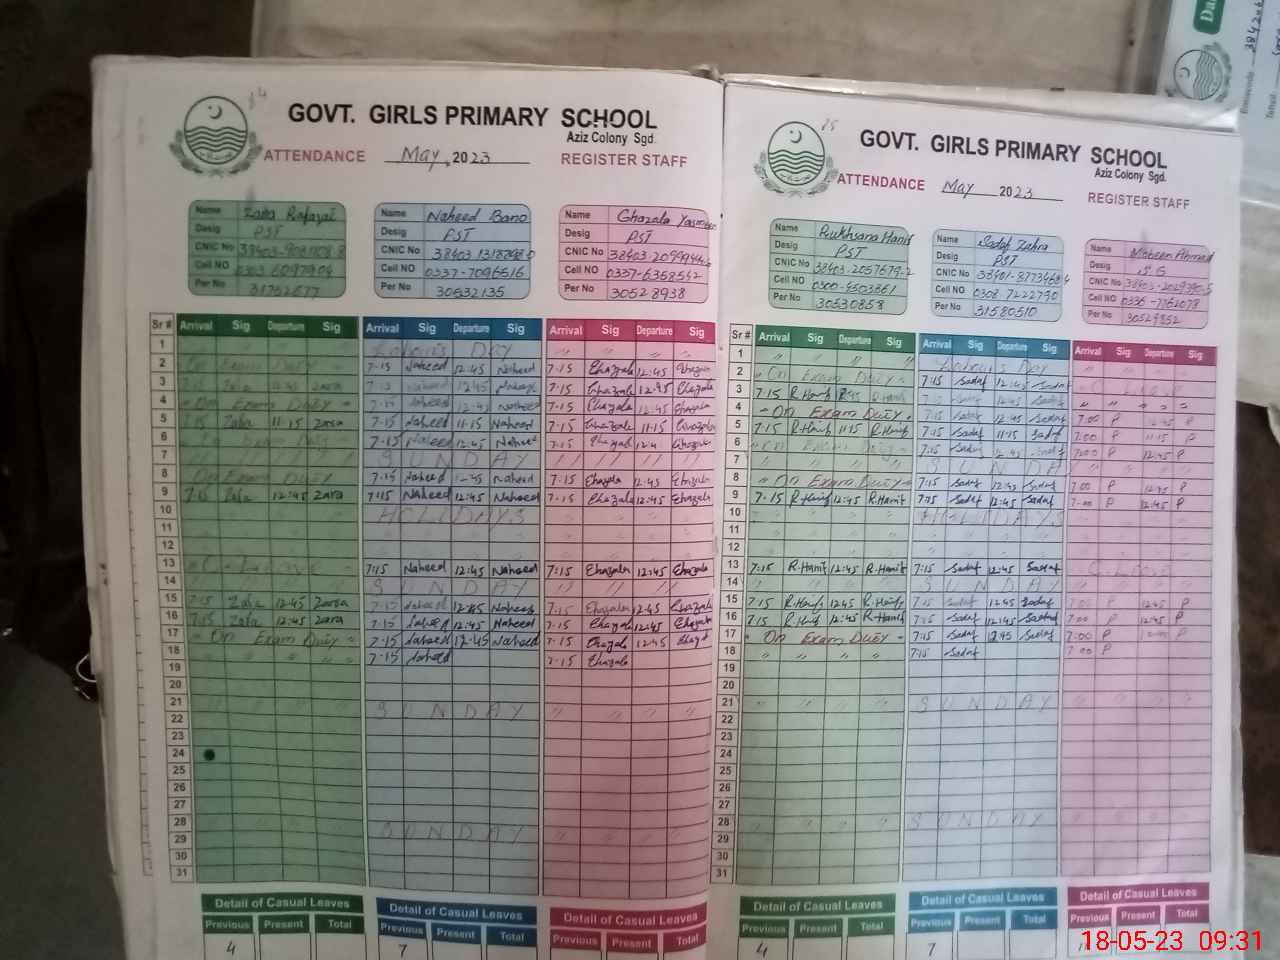 GOVT. GIRLS PRIMARY SCHOOL
Aziz Colony Sgd.
ATTENDANCE May, 2023 REGISTER STAFF
Name Zara Rafaqat
Desig PST
CNIC No
Cell NO 0303 6097904
Per No 31752677
Name Naheed Bano
Desig PST
CNIC No
Cell NO 0337-7096516
Per No 30532135
Name Ghazala Yasmeen
Desig PST
CNIC No
Cell NO 0337-6368542
Per No 30528938
Sr # Arrival Sig Departure Sig Arrival Sig Departure Sig Arrival Sig Departure Sig
1 Labour's Day
2 On Exam Duty 7-15 Naheed 12:45 Naheed 7-15 Ghazala 12:45 Ghazala
3 7-15 Zara 12:45 Zara 7-15 Naheed 12:45 Naheed 7-15 Ghazala 12:45 Ghazala
4 On Exam Duty 7-15 Naheed 12:45 Naheed 7-15 Ghazala 12:45 Ghazala
5 7-15 Zara 11-15 Zara 7-15 Naheed 11-15 Naheed 7-15 Ghazala 11-15 Ghazala
6 On Exam Duty 7-15 Naheed 12:45 Naheed 7-15 Ghazala Ghazala
7 SUNDAY
8 On Exam Duty 7-15 Naheed 12:45 Naheed 7-15 Ghazala 12:45 Ghazala
9 7-15 Zara 12:45 Zara 7:15 Naheed 12:45 Naheed 7-15 Ghazala 12:45 Ghazala
10 HOLIDAYS
11
12
13 7:15 Naheed 12:45 Naheed 7:15 Ghazala 12:45 Ghazala
14 SUNDAY
15 7-15 Zara 12-45 Zara 7-15 Naheed 12:45 Naheed 7-15 Ghazala 12:45 Ghazala
16 7-15 Zara 12:45 Zara 7-15 Naheed 12:45 Naheed 7-15 Ghazala 12:45 Ghazala
17 On Exam Duty 7-15 Naheed 12-45 Naheed 7-15 Ghazala 12:45 Ghazala
18 " " " " 7-15 Naheed 7-15 Ghazala
19
20
21 SUNDAY
22
23
24
25
26
27
28 SUNDAY
29
30
31
Detail of Casual Leaves Detail of Casual Leaves Detail of Casual Leaves
Previous Present Total Previous Present Total Previous Present Total
4 7
GOVT. GIRLS PRIMARY SCHOOL
Aziz Colony Sgd.
ATTENDANCE May 2023 REGISTER STAFF
Name Rukhsana Hanif
Desig PST
CNIC No
Cell NO 0300-4503661
Per No 30530858
Name Sadaf Zahra
Desig PST
CNIC No
Cell NO 0308 7222790
Per No 31580510
Name Mobeen Ahmad
Desig
CNIC No
Cell NO
Per No
Sr # Arrival Sig Departure Sig Arrival Sig Departure Sig Arrival Sig Departure Sig
1 Labour's Day
2 On Exam Duty 7:15 Sadaf 12:45 Sadaf
3 7-15 R.Hanif R.Hanif 7:15 Sadaf 12:45 Sadaf
4 On Exam Duty 7:15 Sadaf 12:45 Sadaf 7:00 P 12:45 P
5 7-15 R.Hanif 11:15 R.Hanif 7:15 Sadaf 11:15 Sadaf 7:00 P 11:15 P
6 On Exam Duty 7:15 Sadaf 12:45 Sadaf 7:00 P 12:45 P
7 SUNDAY
8 On Exam Duty 7:15 Sadaf 12:45 Sadaf 7:00 P 12:45 P
9 7-15 R.Hanif 12:45 R.Hanif 7:15 Sadaf 12:45 Sadaf 7:00 P 12:45 P
10 HOLIDAYS
11
12
13 7:15 R.Hanif 12:45 R.Hanif 7:15 Sadaf 12:45 Sadaf
14 SUNDAY
15 7-15 R.Hanif 12:45 R.Hanif 7:15 Sadaf 12:45 Sadaf 7:00 P 12:45 P
16 7-15 R.Hanif 12:45 R.Hanif 7:15 Sadaf 12:45 Sadaf 7:00 P 12:45 P
17 On Exam Duty 7:15 Sadaf 12:45 Sadaf 7:00 P P
18 " " " " 7:15 Sadaf 7:00 P
19
20
21 SUNDAY
22
23
24
25
26
27
28 SUNDAY
29
30
31
Detail of Casual Leaves Detail of Casual Leaves Detail of Casual Leaves
Previous Present Total Previous Present Total Previous Present Total
4 7
18-05-23 09:31